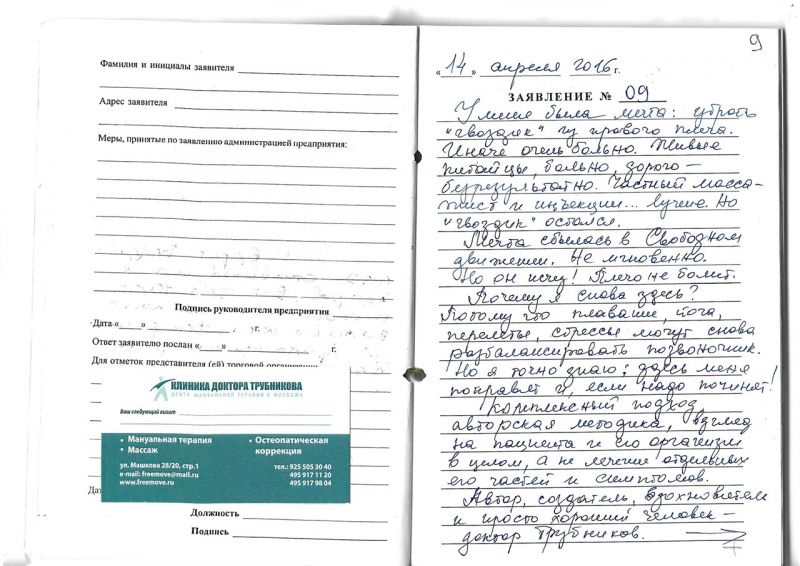 Фамилия и инициалы заявителя
Адрес заявителя
Меры, принятые по заявлению администрацией предприятия:
Подпись руководителя предприятия
Дата « » г.
Ответ заявителю послан « » г.
Для отметок представителя (ей) торговой организации
КЛИНИКА ДОКТОРА ТРУБНИКОВА
ЦЕНТР МАНУАЛЬНОЙ ТЕРАПИИ И МАССАЖА
Ваш следующий визит
• Мануальная терапия
• Массаж
• Остеопатическая
коррекция
ул. Машкова 28/20, стр.1
e-mail: freemove@mail.ru
www.freemove.ru
тел.: 925 505 30 40
495 917 11 20
495 917 98 04
Дат
Должность
Подпись
9
«14» апреля 2016 г.
ЗАЯВЛЕНИЕ № 09
У меня была мечта: убрать
"гвоздик" из правого плеча.
Иначе очень больно. Живые
китайцы, больно, дорого –
безрезультатно. Частный масса-
жист и инъекции... лучше. Но
"гвоздик" остался.
Мечта сбылась в Свободном
движении. Не мгновенно.
Но он исчез! Плечо не болит.
Почему я снова здесь?
Потому что плавание, йога,
перелеты, стрессы могут снова
разбалансировать позвоночник.
Но я точно знаю: здесь меня
поправят и, если надо починят!
Комплексный подход,
авторская методика, взгляд
на пациента и его организм
в целом, а не лечение отдельных
его частей и симптомов.
Автор, создатель, вдохновитель
и просто хороший человек –
доктор Трубников.